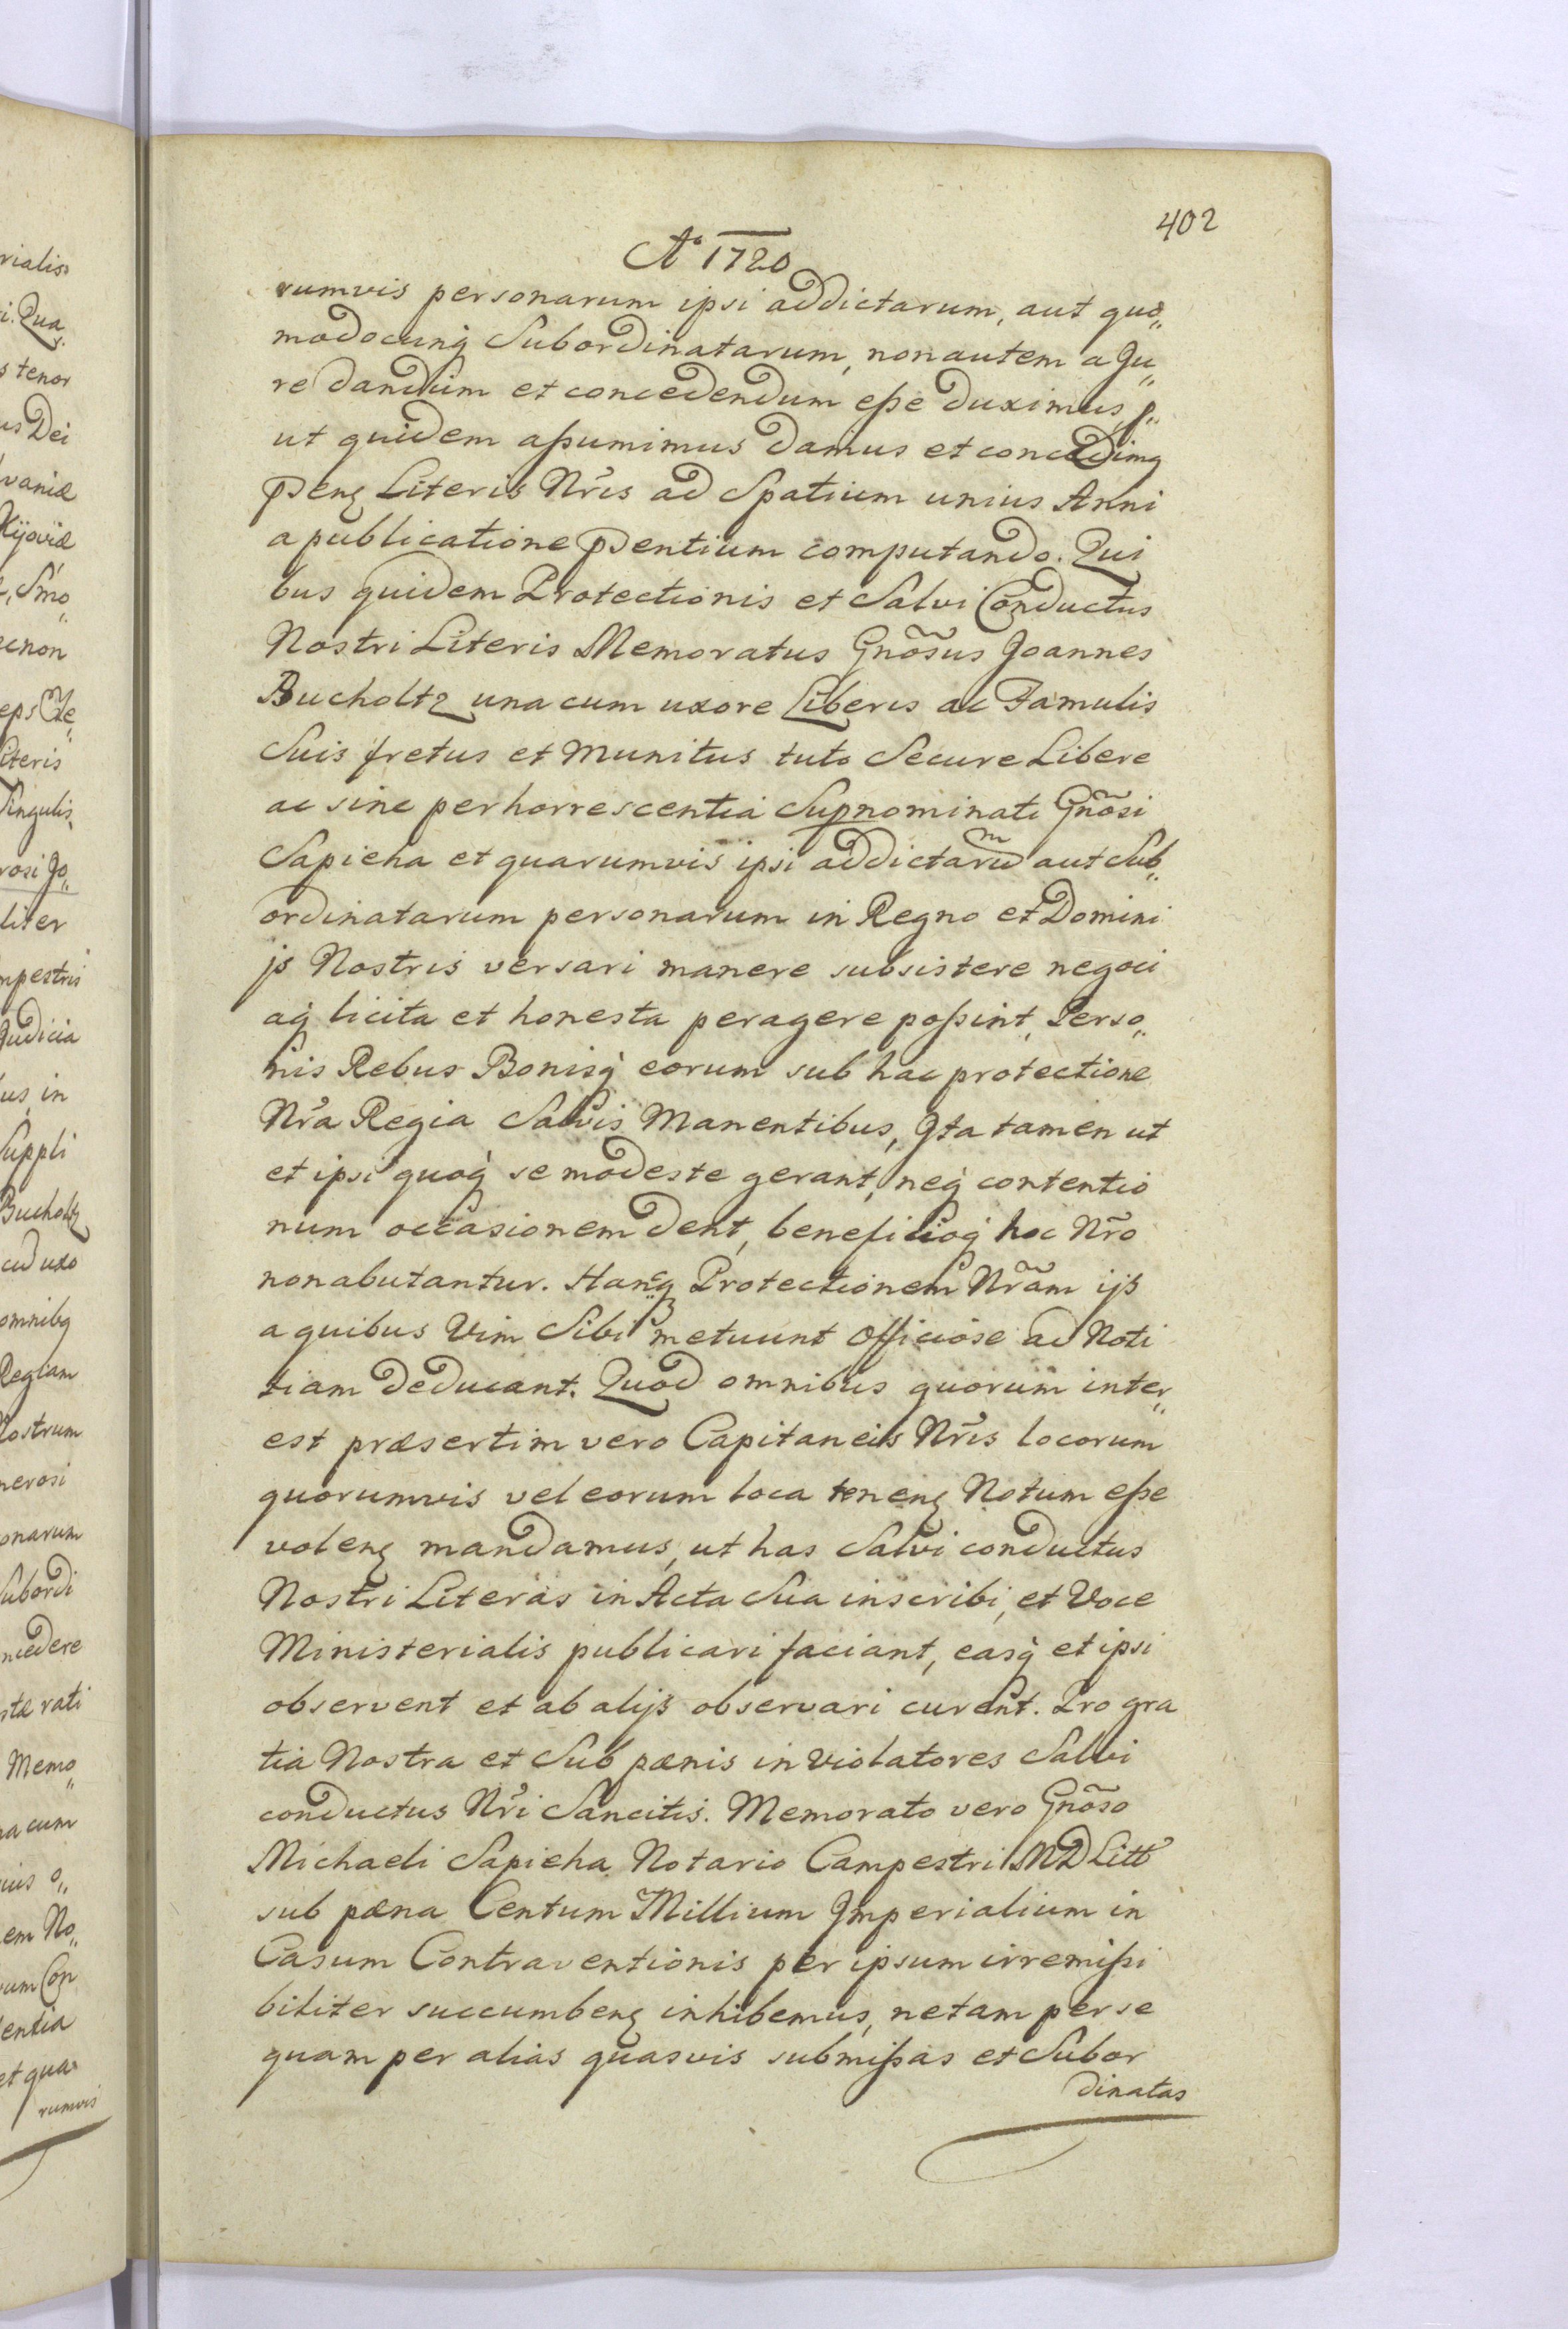 402
Aº 1720
rumvis personarum ipsi addictarum, aut quo„
modocunq́ Subordinatarum, non autem a Ju„
re dandum et concedendum eße duximus, p„
ut quidem aßumimus damus et concedimq
Pseng Literis Nr̃is ad Spatium unius Anni
a publicatione Psentium computando. Qui
bus quidem Protectionis et Salvi Conductus
Nostri Literis Memoratus Gnõsus Joannes
Bucholtz una cum uxore Liberis ac Famulis
Suis fretus et munitus tuto Secure Libere
ac sine perhorrescentia Supnominati Gnõsi
Sapieha et quarumvis ipsi addictarũ aut Sub„
ordinatarum personarum in Regno et Domini
js Nostris versari manere subsistere negoci
aq́ licita et honesta peragere poßint, Perso„
nis Rebus Bonisq́ eorum sub hac protectione
Nr̃a Regia Salvis Manentibus, Jta tamen ut
et ipsi quoq́ se modeste gerant, neq́ contentio
num occasionem dent, beneficioq́ hoc Nr̃o
non abutantur. Hancq Protectionem Nr̃am ijs
a quibus Vim Sibi metuunt officiose ad Noti
tiam deducant. Quod omnibus quorum inter„
est præsertim vero Capitaneis Nr̃is locorum
quorumvis vel eorum loca teneng Notum eße
voleng mandamus, ut has Salvi conductus
Nostri Literas in Acta Sua inscribi, et Voce
Ministerialis publicari faciant, easq́ et ipsi
observent et ab alijs observari curent. Pro gra
tia Nostra et Sub pœnis in violatores Salvi
conductus Nr̃i Sancitis. Memorato vero Gnõso
Michaeli Sapieha Notario Campestri MD Litt
sub pœna Centum Millium Jmperialium in
Casum Contraventionis per ipsum irremißi
biliter succumbeng inhibemus, ne tam per se
quam per alias quasvis submißas et Subor
dinatas